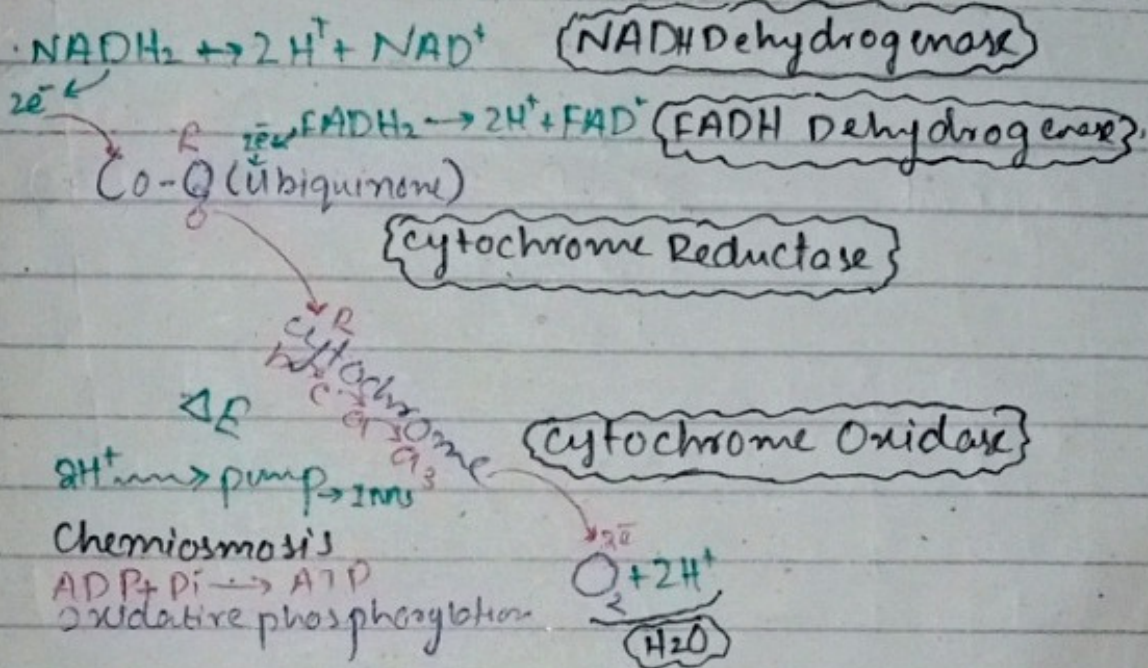 NADH₂ ↔ 2H⁺ + NAD⁺ NADH Dehydrogenase
2e⁻
2e⁻ FADH₂ → 2H⁺ + FAD⁺ FADH Dehydrogenase
R
Co-Q (Ubiquinone)
O
Cytochrome Reductase
R
Cytochrome
b c a a₃
ΔE
Cytochrome Oxidase
2H⁺ → pump →
Chemiosmosis
2e⁻
ADP + Pi → ATP
O₂ + 2H⁺
oxidative phosphorylation
H₂O